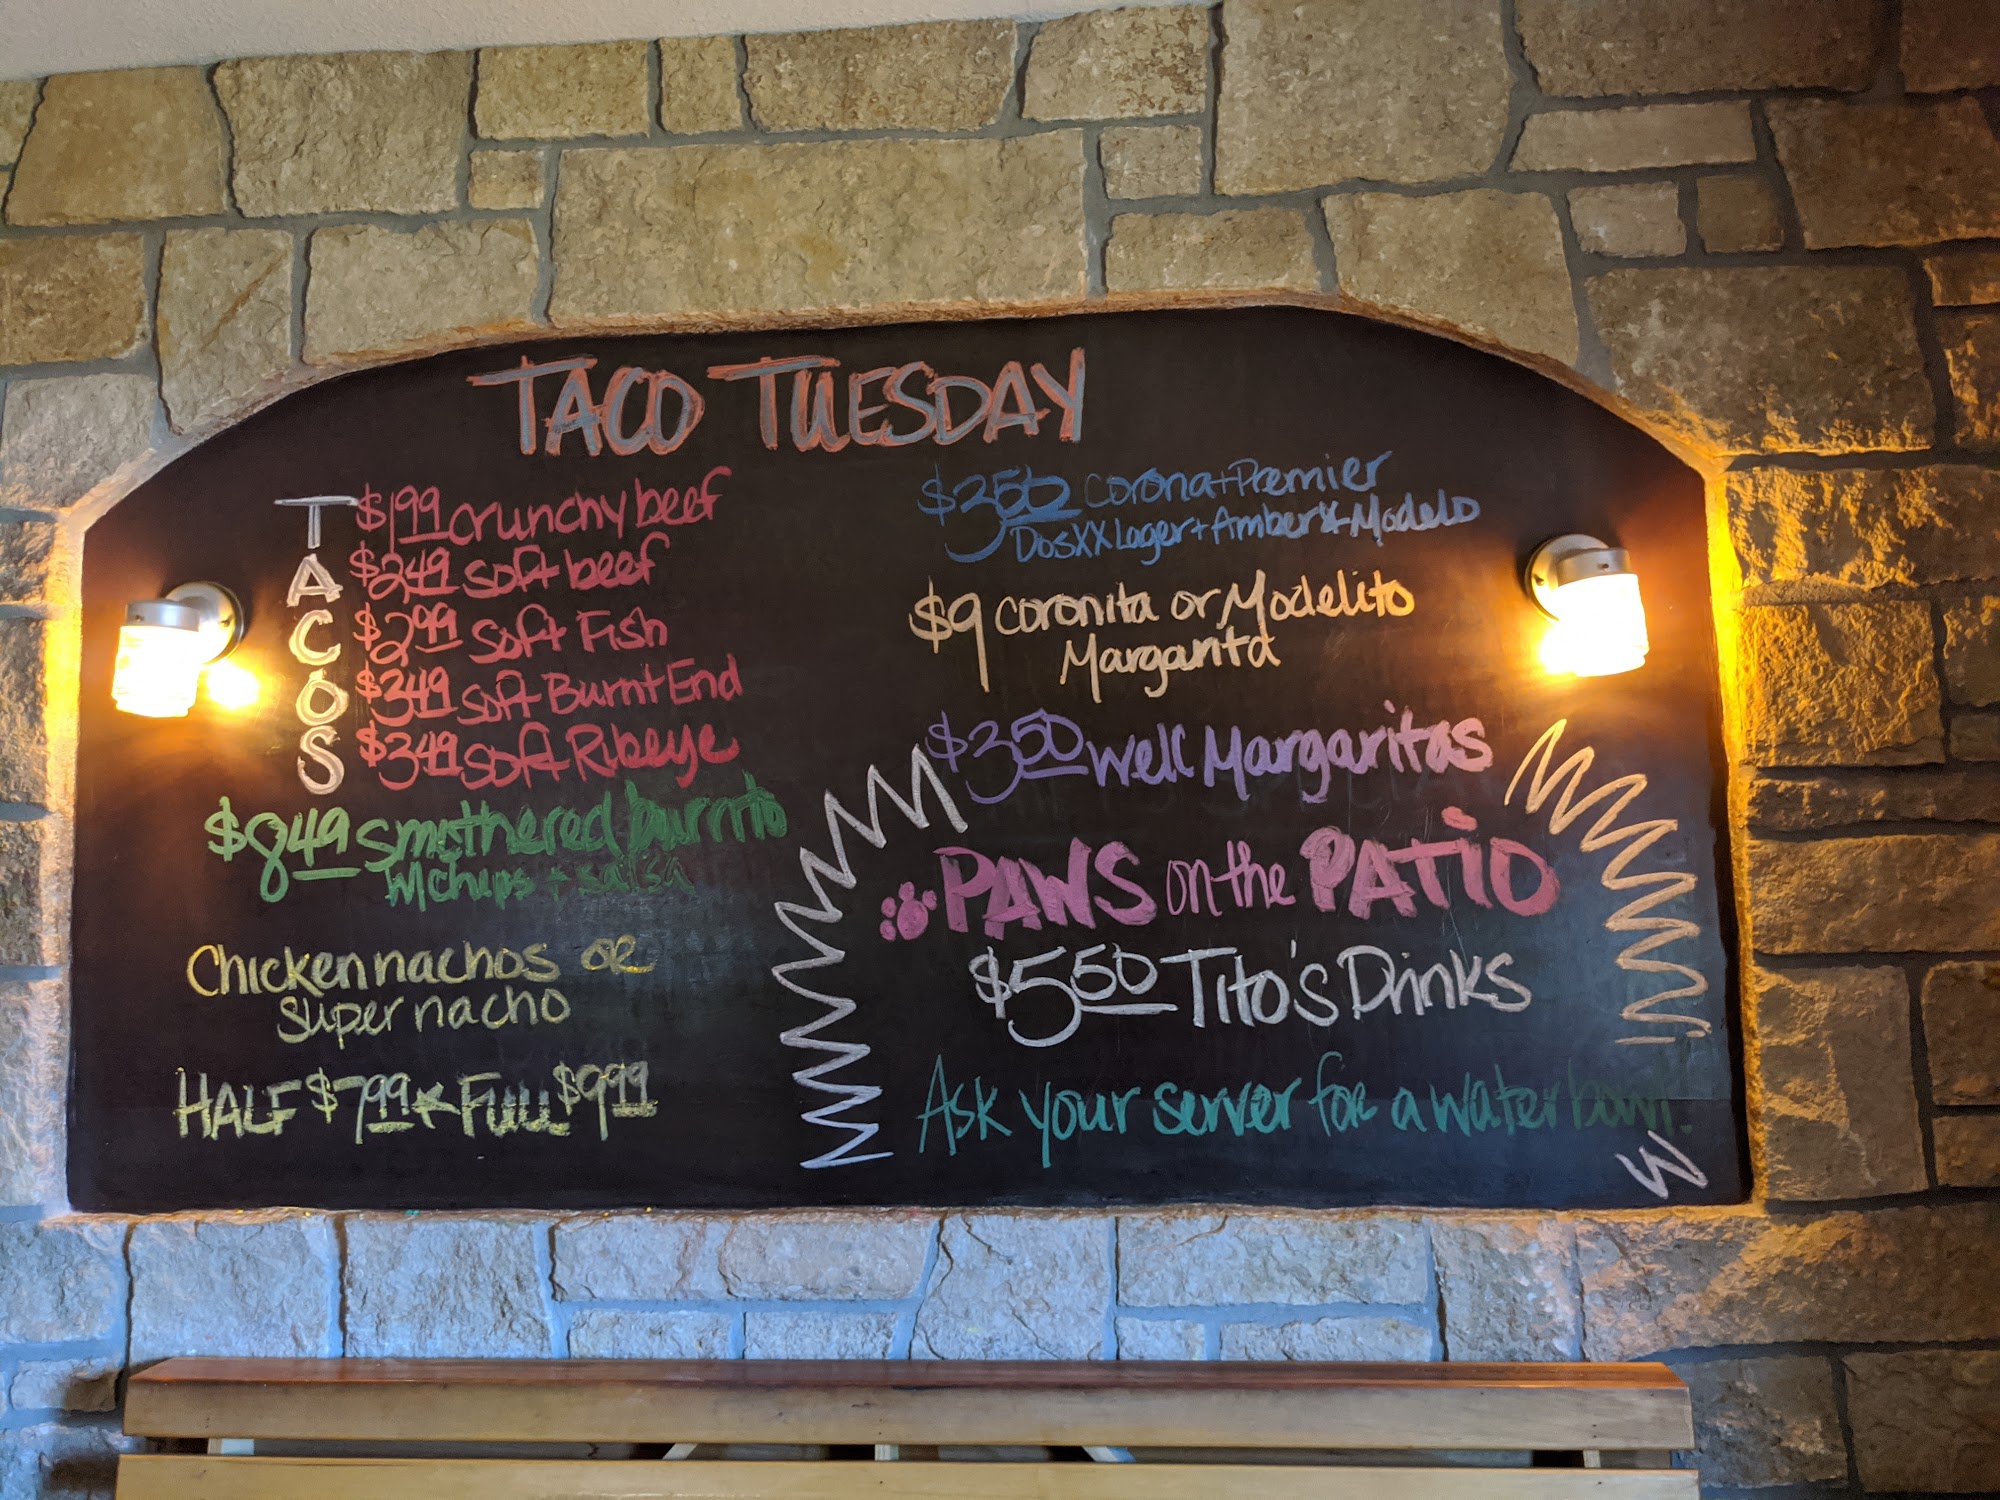 TACO TUESDAY
TACOS
$1.99 crunchy beef
$2.49 soft beef
$2.99 soft Fish
$3.49 soft Burnt End
$3.49 soft Ribeye
$8.49 smothered burrito
w/chips + salsa
Chicken nachos or
super nacho
HALF $7.99 Full $9.99
$3.50 corona + Premier
Dos XX Lager + Amber + Modelo
$9 coronita or Modelito
Margarita
$3.50 well Margaritas
PAWS on the PATIO
$5.50 Tito's Drinks
Ask your server for a water bowl!